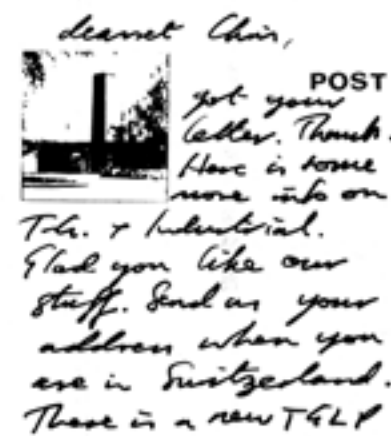 dearest Chris,
POST
got your
letter. Thanks.
Here is some
more info on
T.G. + Industrial.
Glad you like our
stuff. Send us your
address when you
are in Switzerland.
There is a new TGLP